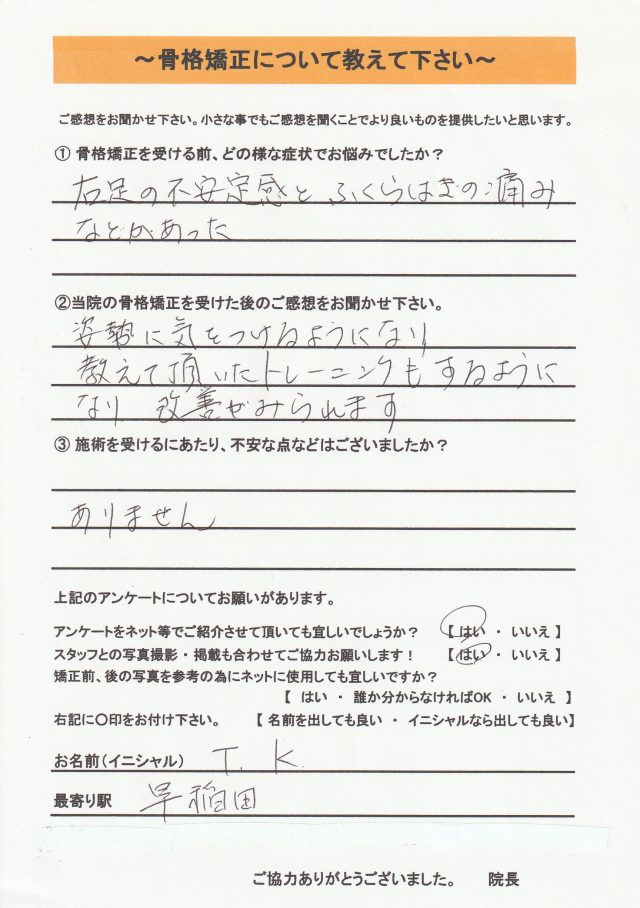 ～骨格矯正について教えて下さい～
ご感想をお聞かせ下さい。小さな事でもご感想を聞くことでより良いものを提供したいと思います。
① 骨格矯正を受ける前、どの様な症状でお悩みでしたか？
右足の不安定感と ふくらはぎの痛み
などがあった
②当院の骨格矯正を受けた後のご感想をお聞かせ下さい。
姿勢に気をつけるようになり
教えて頂いたトレーニングもするように
なり 改善がみられます
③ 施術を受けるにあたり、不安な点などはございましたか？
ありません
上記のアンケートについてお願いがあります。
アンケートをネット等でご紹介させて頂いても宜しいでしょうか？ 【 はい ・ いいえ 】
スタッフとの写真撮影・掲載も合わせてご協力お願いします！ 【 はい ・ いいえ 】
矯正前、後の写真を参考の為にネットに使用しても宜しいですか？
【 はい ・ 誰か分からなければOK ・ いいえ 】
右記に〇印をお付け下さい。 【 名前を出しても良い ・ イニシャルなら出しても良い】
お名前（イニシャル） T. K.
最寄り駅 早稲田
ご協力ありがとうございました。 院長